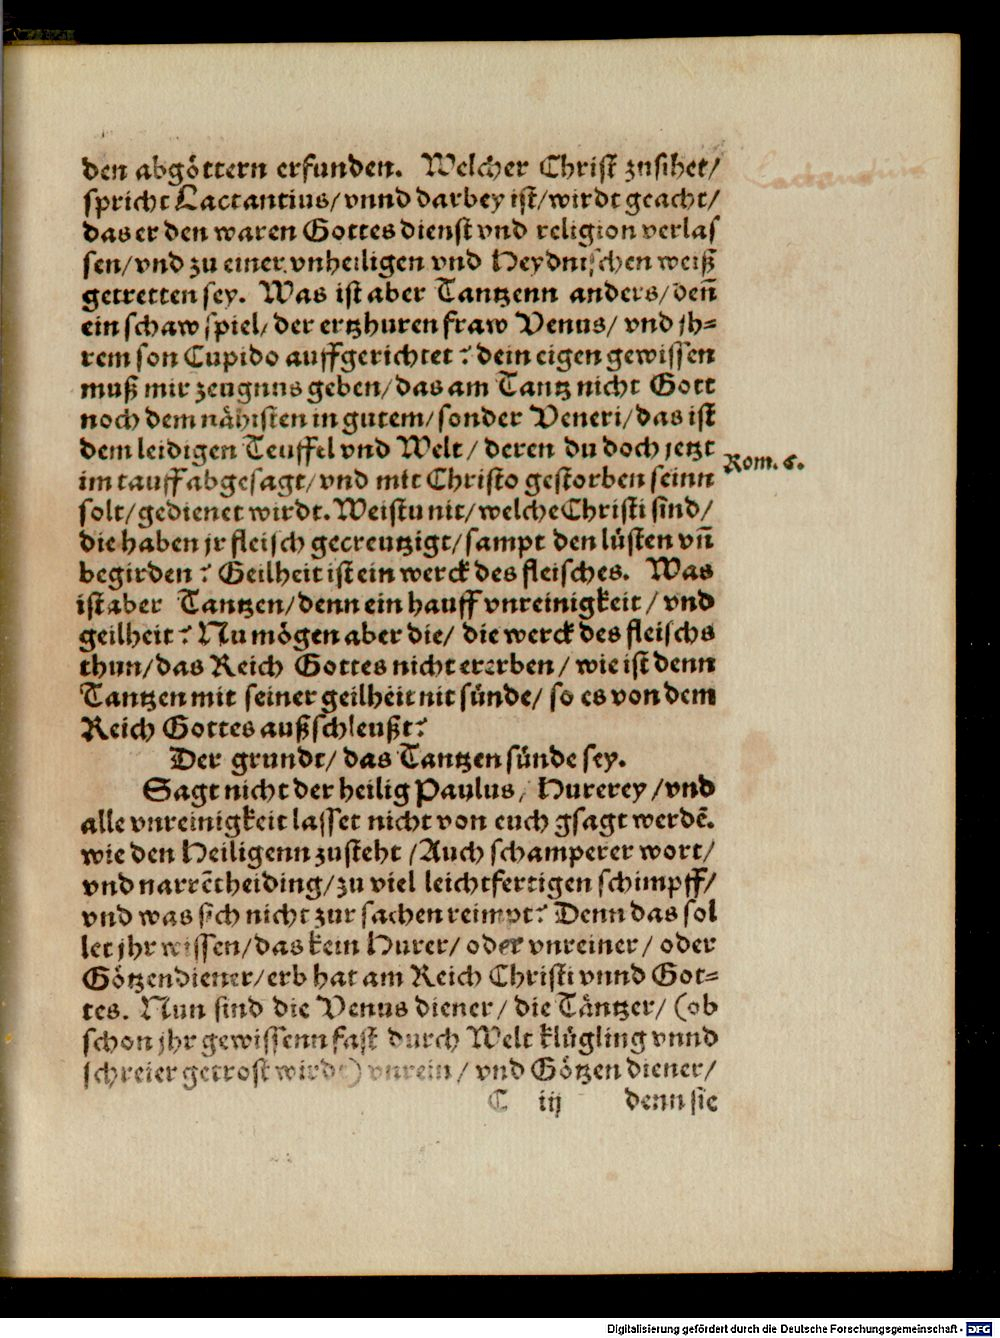 den abgöttern erfunden. Welcher Christ zusihet/
spricht Lactantius/vnnd darbey ist/wirdt geacht/
das er den waren Gottes dienst vnd religion verlas
sen/vnd zu einer vnheiligen vnd Heydnischen weiß
getretten sey. Was ist aber Tantzenn anders/deñ
ein schaw spiel/der ertzhuren fraw Venus/ vnd jh-
rem son Cupido auffgerichtet? dein eigen gewissen
muß mir zeugnus geben/das am Tantz nicht Gott
noch dem nähisten in gutem/sonder Veneri/das ist
dem leidigen Teuffel vnd Welt/ deren du doch jetzt
im tauff abgesagt/vnd mit Christo gestorben seinn
Rom. 6.
solt/gedienet wirdt. Weistu nit/welche Christi sind/
die haben jr fleisch gecreutzigt/sampt den lüsten vñ
begirden? Geilheit ist ein werck des fleisches. Was
ist aber Tantzen/denn ein hauff vnreinigkeit/vnd
geilheit? Nu mögen aber die/ die werck des fleischs
thun/das Reich Gottes nicht ererben/ wie ist denn
Tantzen mit seiner geilheit nit sünde/ so es von dem
Reich Gottes außschleußt?
Der grundt/ das Tantzen sünde sey.
Sagt nicht der heilig Paulus/ Hurerey/vnd
alle vnreinigkeit lasset nicht von euch gsagt werdē.
wie den Heiligenn zusteht/Auch schamperer wort/
vnd narrētheiding/zu viel leichtfertigen schimpff/
vnd was sich nicht zur sachen reimpt? Denn das sol
let jhr wissen/das kein Hurer/ oder vnreiner/ oder
Götzendiener/erb hat am Reich Christi vnnd Got-
tes. Nun sind die Venus diener/ die Täntzer/ (ob
schon jhr gewissenn fast durch Welt klügling vnnd
schreier getrost wirdt) vnrein/ vnd Götzen diener/
C iij denn sie
Lactantius
Digitalisierung gefördert durch die Deutsche Forschungsgemeinschaft - DFG